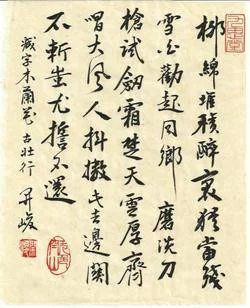 柳綿堆積醉裏猶當殘
雪和勸起同鄉 磨洗刀
槍試劍霜楚天雲厚齊
唱大風人抖擻 去邊關
不斬蚩尤誓不還
減字木蘭花 古壯行 昇峻